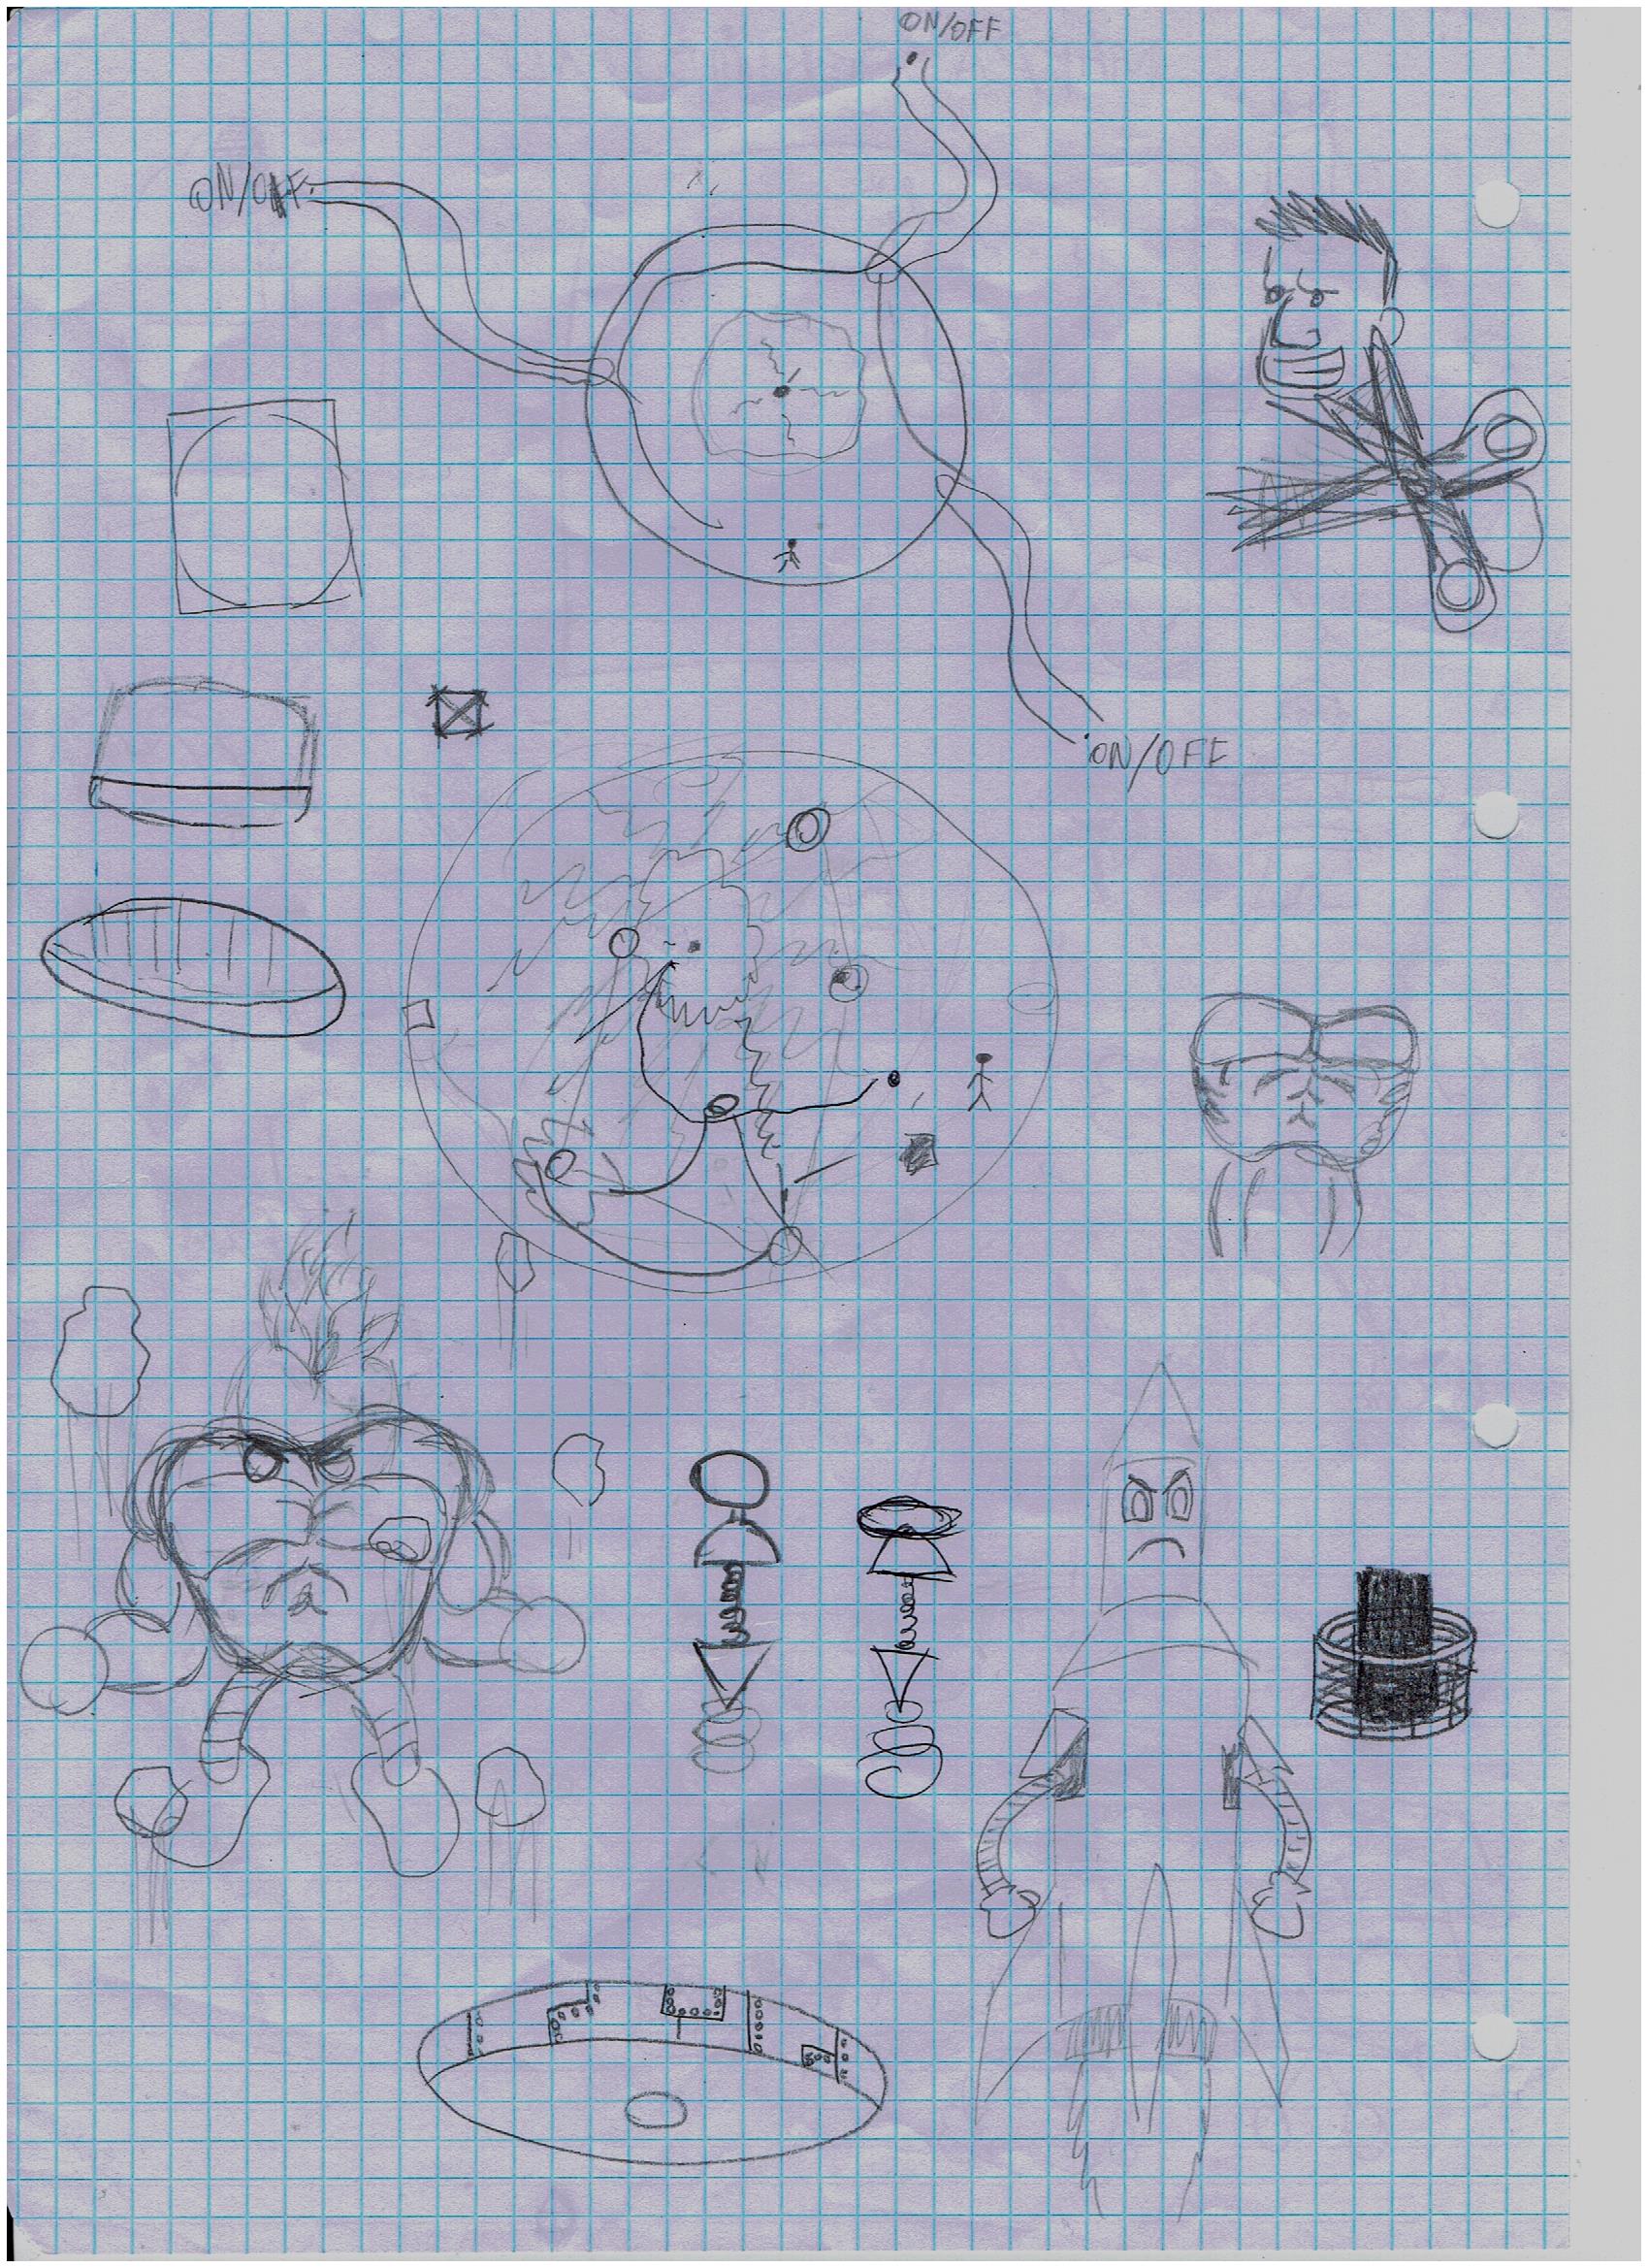 ON/OFF
ON/OFF
ON/OFF